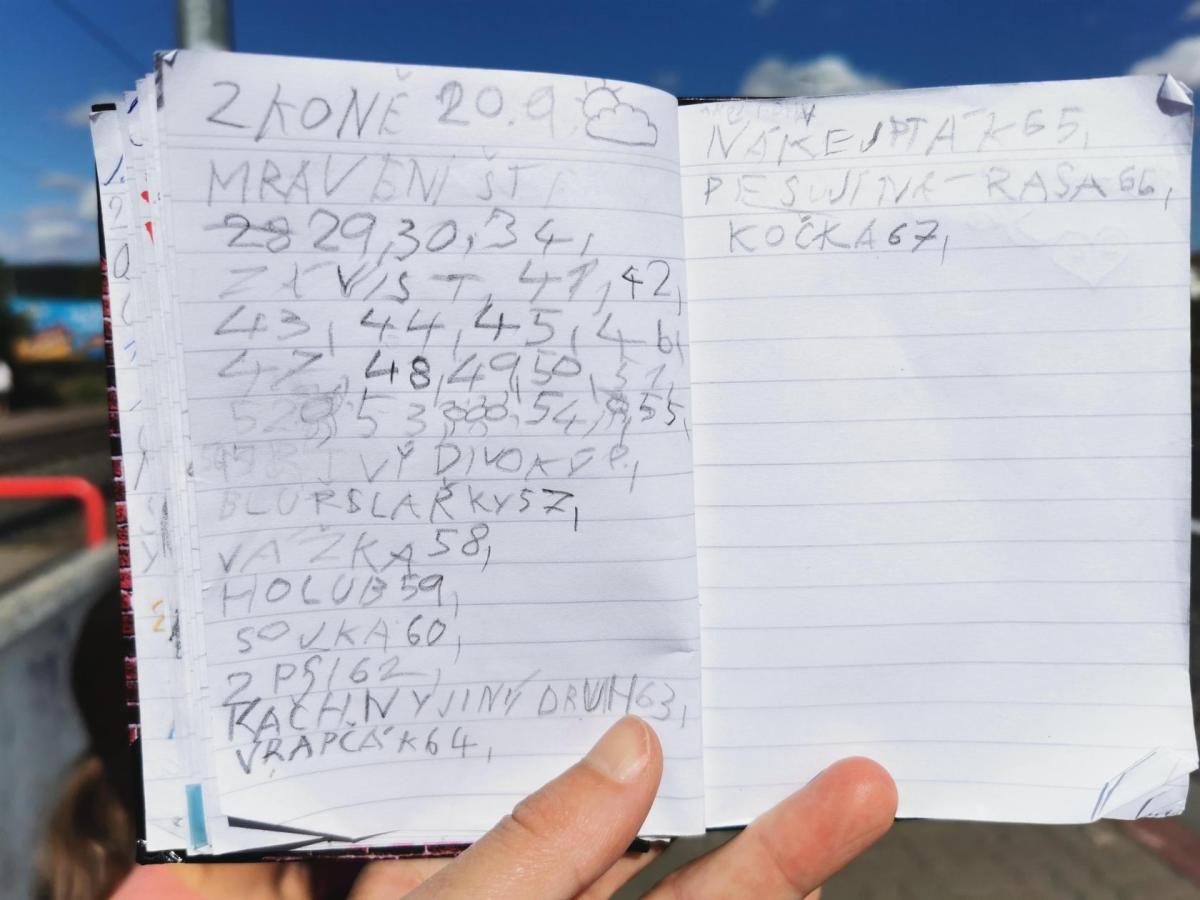 2 KONĚ 20.9.
MRAVENIŠTĚ
28 29,30,34,
ZÁVIST, 41,42,
43, 44, 45, 46,
47, 48,49,50,51,
52, 53, 54, 55,
DIVOKÝ P.,
57,
VÁŽKA 58,
HOLUB 59,
SOJKA 60,
2 PSI 62,
KACHNY JINÝ DRUH 63,
VRAPČÁK 64,
NÁKEJ PTÁK 65,
PES JINÁ - RASA 66,
KOČKA 67,